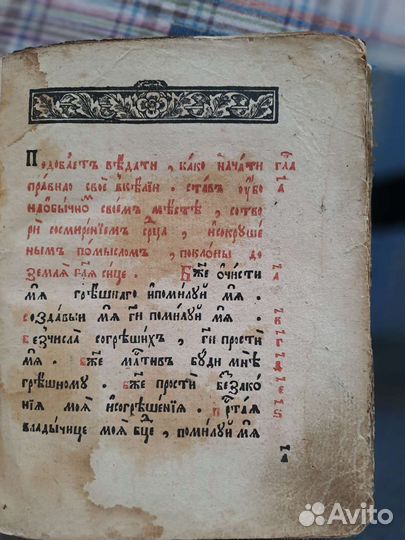 Подоваетъ вѣдати, како начати
правило своѐ вкелїи. ставъ ᲂу҆бо
наѡбычно своемъ мѣстѣ, сотво
ри сосмиренїемъ срⷣца, исокруше
нымъ помысломъ, поклоны до
земли гл҃я сице. Бж҃е ѡчисти
мя грѣшнаго ипомилуй мя.
создавыи мя гд҃и помилуй мя.
безчисла согрѣшихъ, гд҃и прости
мя. бж҃е мл҃тивъ буди мнѣ
грѣшному. бж҃е прости беззако
нїя моя исогрѣшенїя. прⷭ҇тая
владычице моя бцⷣе, помилуй мя
гла
Avito